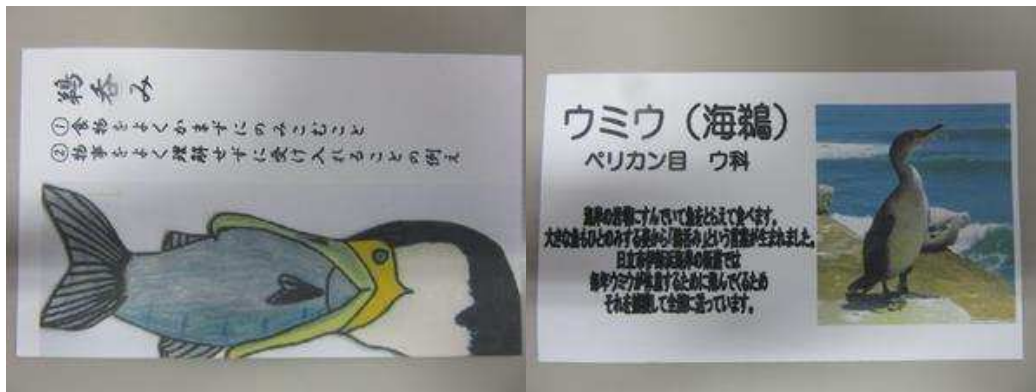 鵜呑み
①食物をよくかまずにのみこむこと
②物事をよく理解せずに受け入れることの例え
ウミウ（海鵜）
ペリカン目 ウ科
海岸の岩場にすんでいて魚をとらえて食べます。
大きな魚もひとのみする姿から「鵜呑み」という言葉が生まれました。
日立市伊師浜海岸の断崖では
毎年ウミウが休息するために飛んでくるため
それを捕獲して全国に送っています。